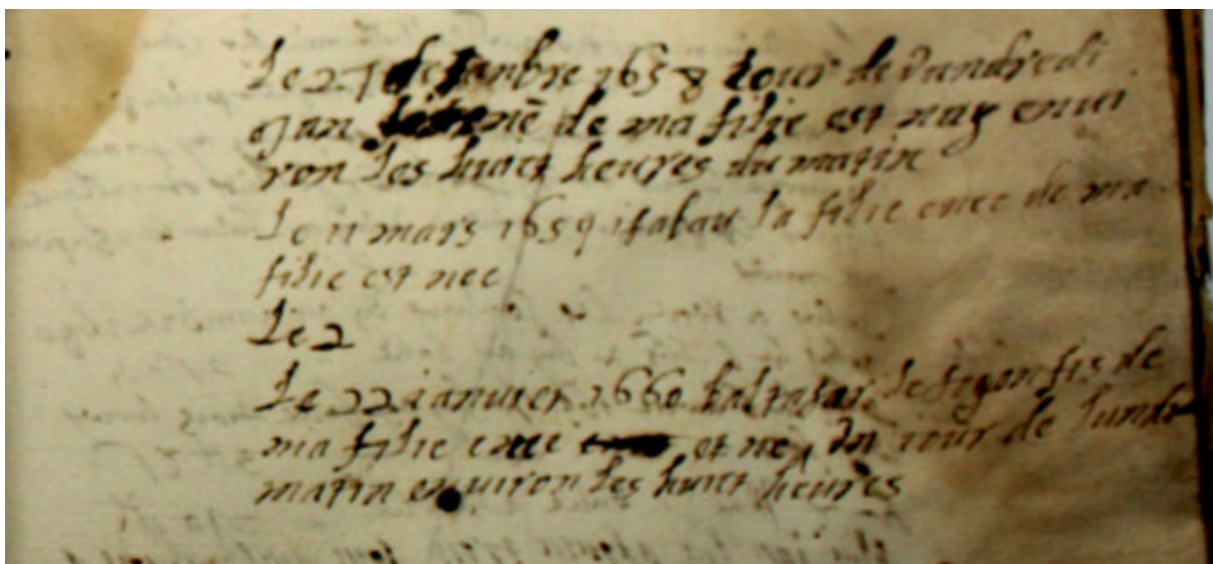 Le 27 desanbre 1658 iour de vandredi
Jan de ma filie est nay enui
ron les huict heures du matin
Le 11 mars 1659 isabau la filie enee de ma
filie est nee
Le 2
Le 22 ianuier 1660 baltasar de sigon fis de
ma filie enee et ne un iour de lundi
matin enuiron les huict heures